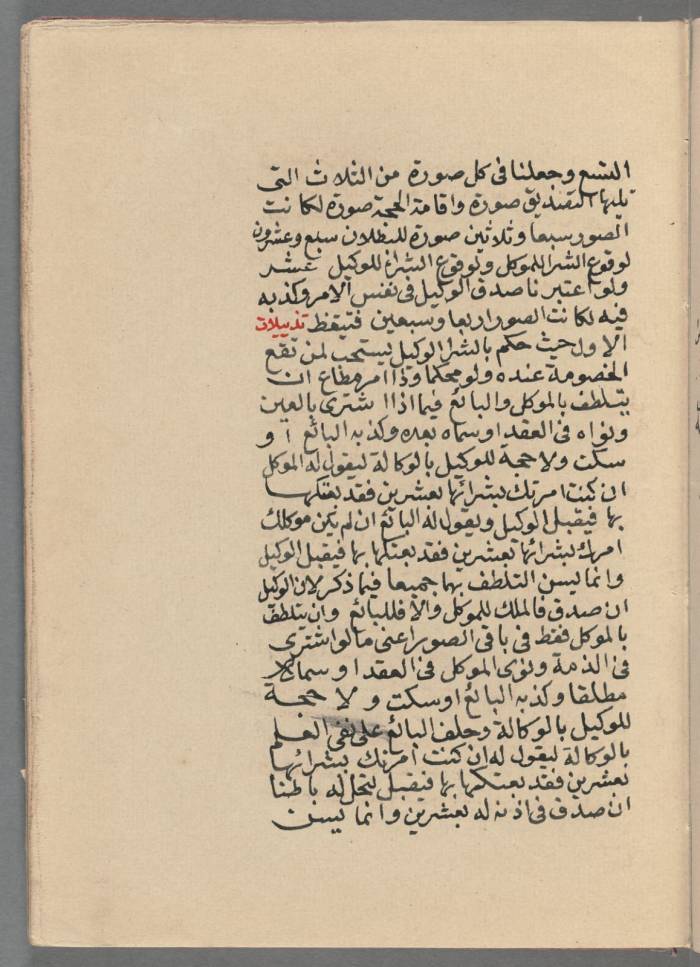 التسع وجعلنا فى كل صورة من الثلاث التى
تليها التصديق صورة واقامة الحجة صورة لكانت
الصور سبعا وثلاثين صورة للبطلان سبع وعشرون
لوقوع الشرا للموكل ولوقوع الشراء للوكيل عشر
ولو اعتبرنا صدق الوكيل فى نفس الامر وكذبه
فيه لكانت الصور اربعا وسبعين فتيقظ تذييلات
الاول حيث حكم بالشرا لوكيل يستحب لمن تقع
الخصومة عنده ولو محكما وذا امر مطاع ان
يتلطف بالموكل والبائع فيما اذا اشترى بالعين
ونواه فى العقد او سماه بعده وكذبه البائع او
سكت ولا حجة للوكيل بالوكالة ليقول له الموكل
ان كنت امرتك بشرائها بعشرين فقد بعتكها
بها فيقبل الوكيل ويقول له البائع ان لم يكن موكلك
امرك بشرائها بعشرين فقد بعتكها بها فيقبل الوكيل
وانما يسن التلطف بهما جميعا فيما ذكر لان الوكيل
ان صدق فالملك للموكل والا فللبائع وان يتلطف
بالموكل فقط فى باقى الصور اعنى ما لو اشترى
فى الذمة ونوى الموكل فى العقد او سماه
مطلقا وكذبه البائع او سكت ولا حجة
للوكيل بالوكالة وحلف البائع على نفى العلم
بالوكالة ليقول له ان كنت امرتك بشرائها
بعشرين فقد بعتكها بها فيقبل لتحل له باطنا
ان صدق فى اذنه له بعشرين وانما يسن